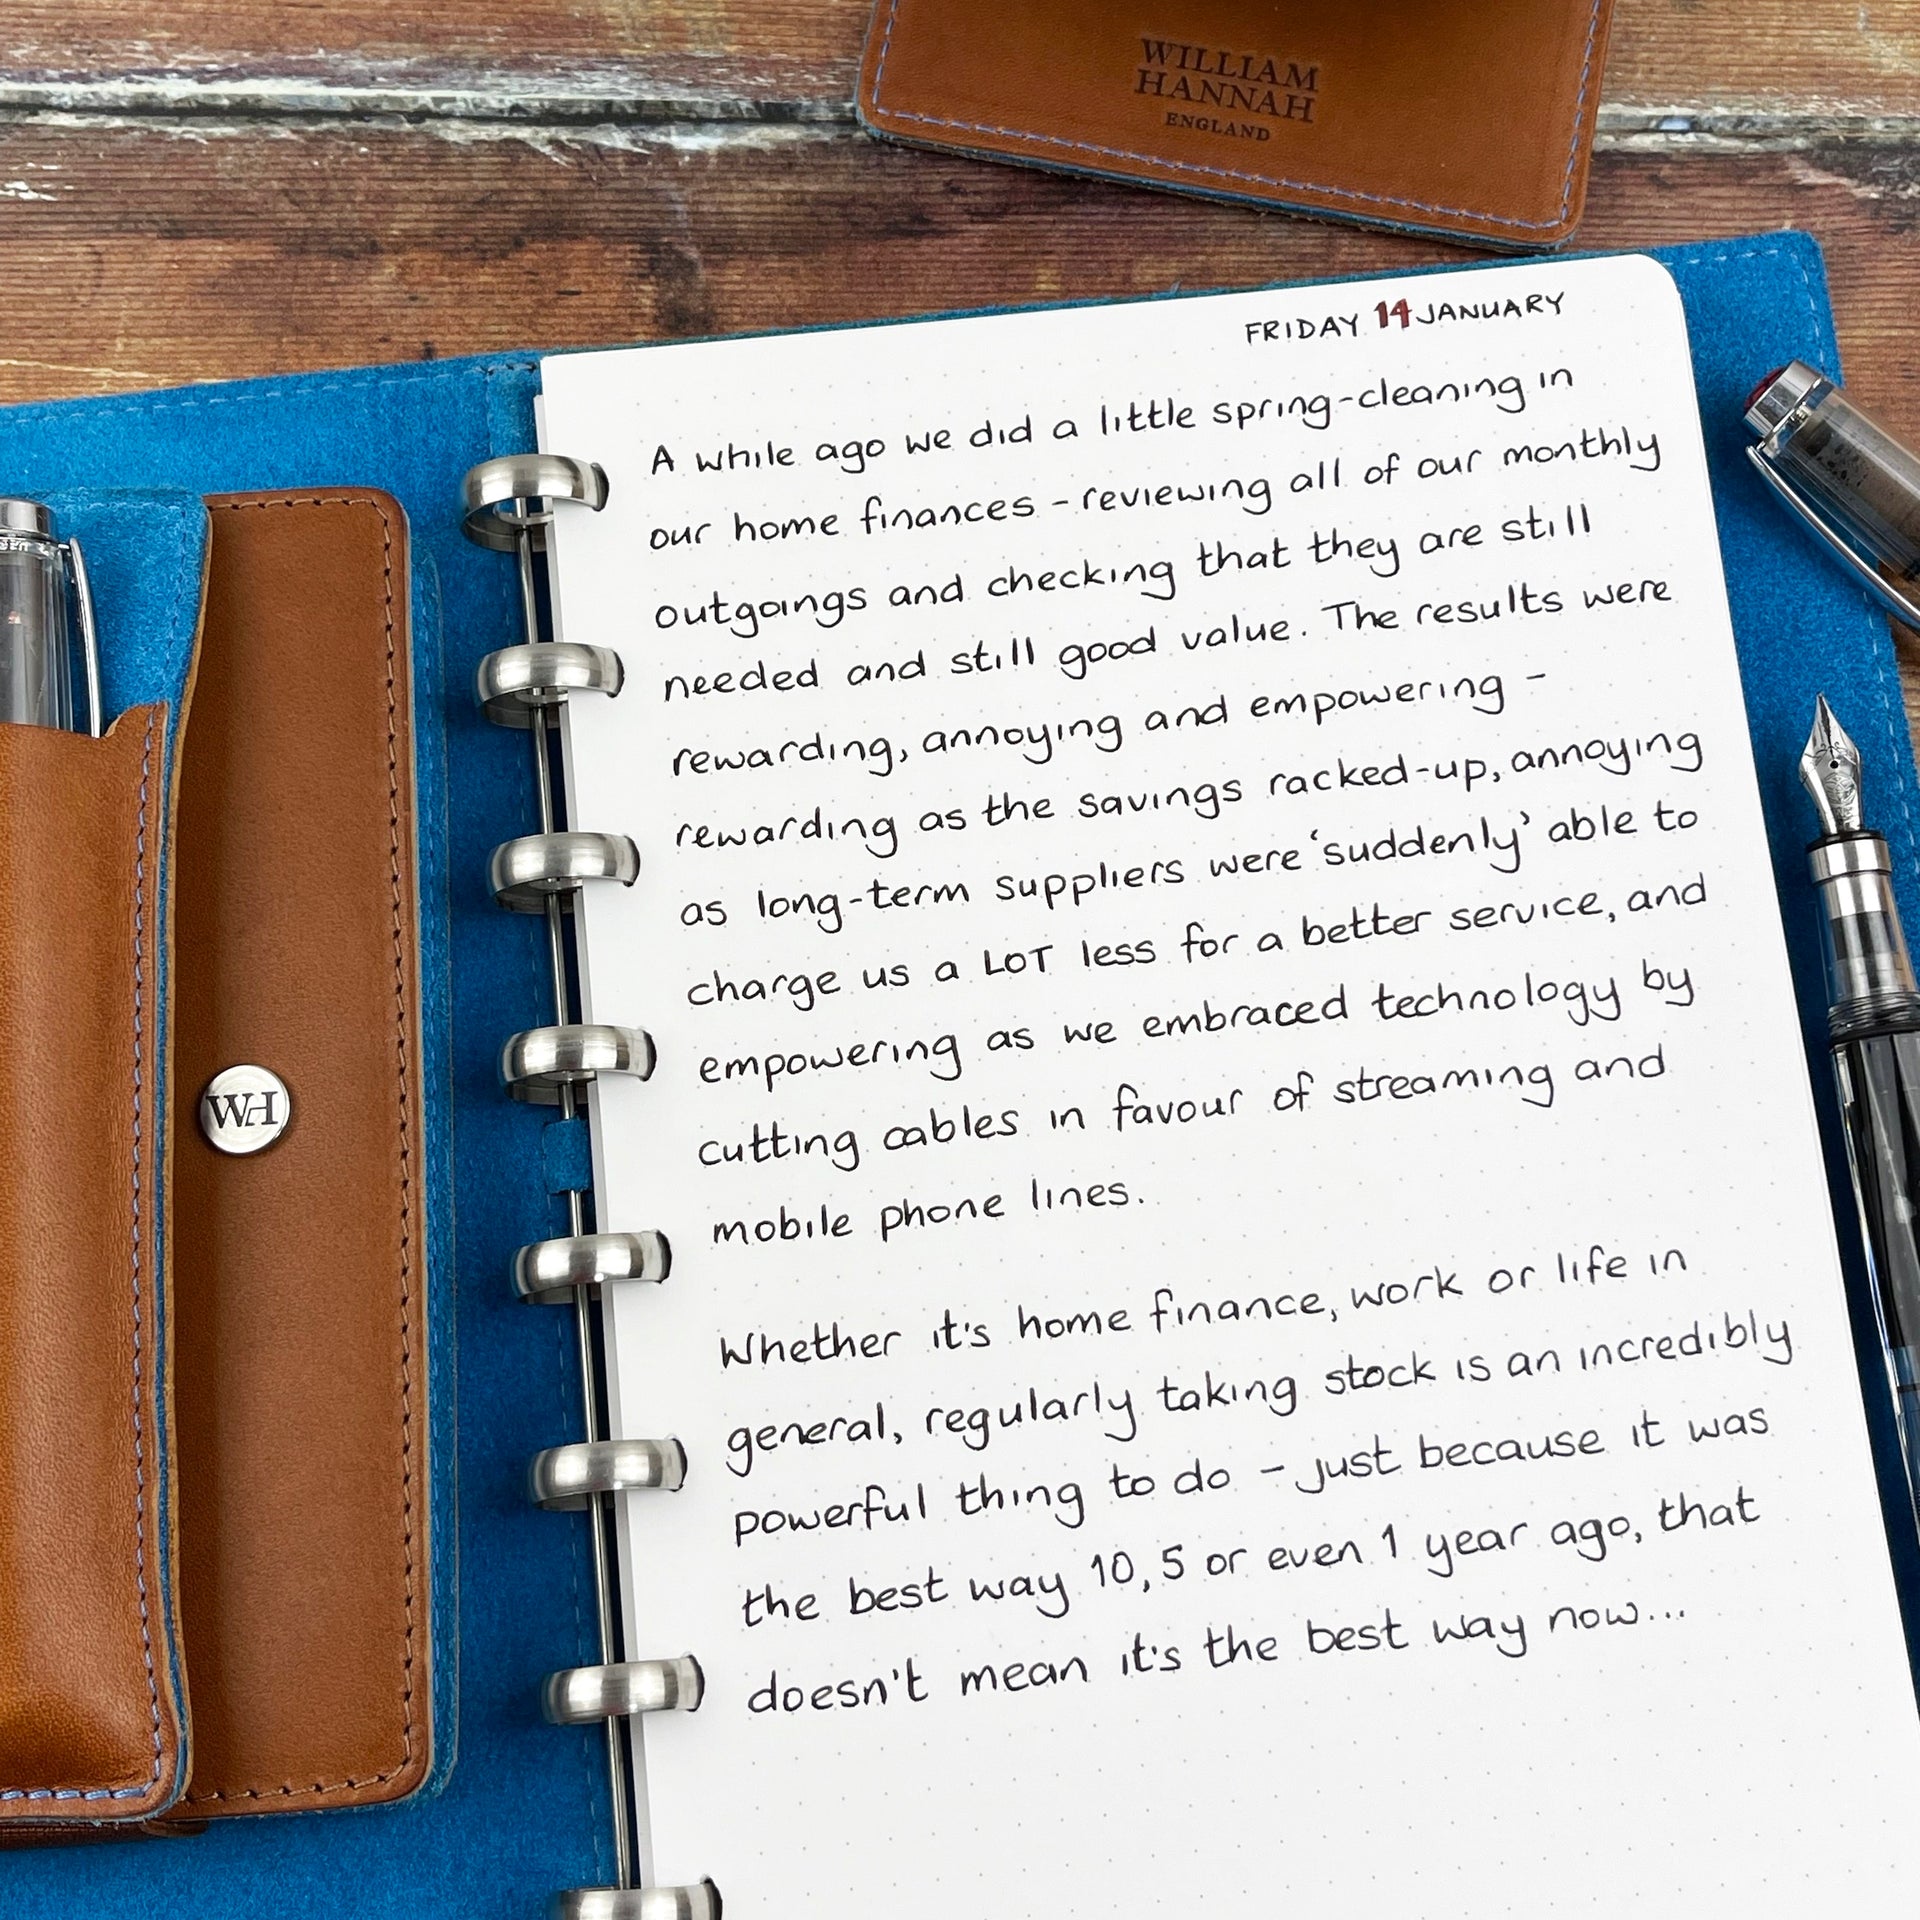 WILLIAM
HANNAH
ENGLAND
FRIDAY 14 JANUARY
A while ago we did a little spring-cleaning in
our home finances - reviewing all of our monthly
outgoings and checking that they are still
needed and still good value. The results were
rewarding, annoying and empowering -
rewarding as the savings racked-up, annoying
as long-term suppliers were 'suddenly' able to
charge us a LOT less for a better service, and
empowering as we embraced technology by
cutting cables in favour of streaming and
mobile phone lines.
Whether it's home finance, work or life in
general, regularly taking stock is an incredibly
powerful thing to do - just because it was
the best way 10, 5 or even 1 year ago, that
doesn't mean it's the best way now...
WH